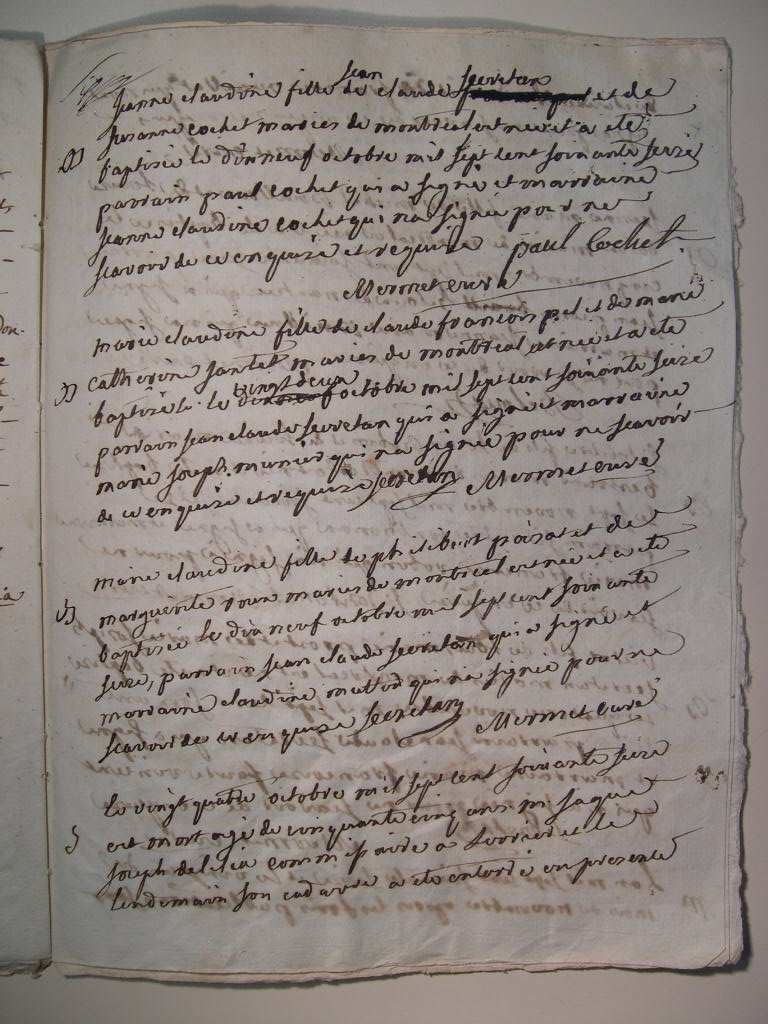 jean secretan
jeanne claudine fille de claude et de
susanne cochet mariés de montreal est née et a eté
baptisée le dixneuf octobre mil sept cent soixante seize
parrain paul cochet qui a signé et marraine
jeanne claudine cochet qui na signée pour ne
scavoir de ce enquise et requise paul Cochet
Mermet curé
marie claudine fille de claude francois pel et de marie
catherine jantet mariés de montreal est née et a eté
vingt deux
baptisée le octobre mil sept cent soixante seize
parrain jean claude secretan qui a signé et marraine
marie joseph munier qui na signée pour ne scavoir
de ce enquise et requise secretan Mermet curé
marie claudine fille de philibert poisat et de
marguerite roux mariés de montreal est née et a eté
baptisée le dix neuf octobre mil sept cent soixante
seize, parrain jean claude secretan qui a signé et
marraine claudine qui na signée pour ne
scavoir de ce enquise secretan Mermet curé
le vingt quatre octobre mil sept cent soixante seize
est mort agé de cinquante cinq ans mr jaque
joseph commissaire a et le
lendemain son cadavre a eté enterré en presence